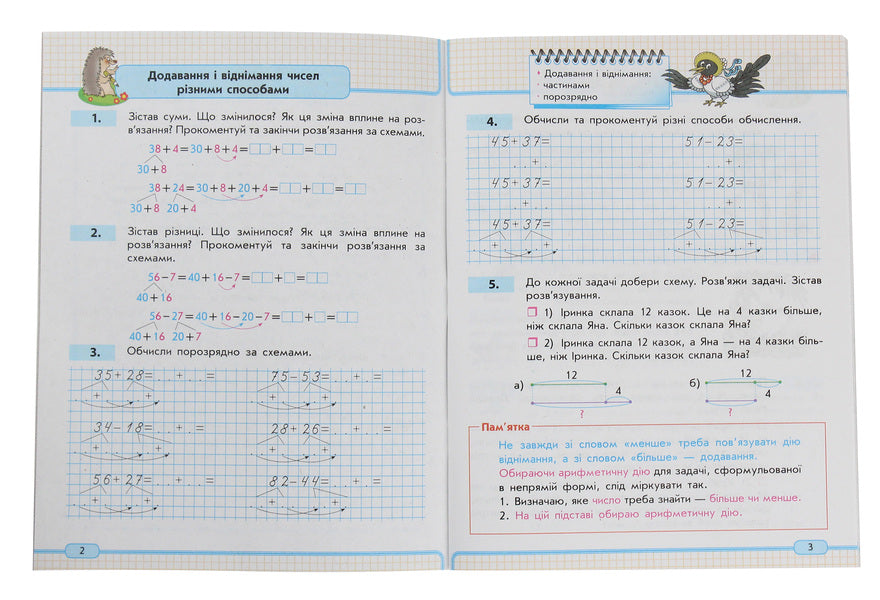 Додавання і віднімання чисел
різними способами
1. Зістав суми. Що змінилося? Як ця зміна вплине на роз-
в'язання? Прокоментуй та закінчи розв'язання за схемами.
38+4=30+8+4=□□+□□=□□
30+8
38+24=30+8+20+4=□□+□□=□□
30+8 20+4
2. Зістав різниці. Що змінилося? Як ця зміна вплине на
розв'язання? Прокоментуй та закінчи розв'язання за
схемами.
56-7=40+16-7=□□+□=□□
40+16
56-27=40+16-20-7=□□+□=□□
40+16 20+7
3. Обчисли порозрядно за схемами.
35+28=..+..= 75-53=..+..=
34-18=..+..= 28+26=..+..=
56+27=..+..= 82-44=..+..=
2
Додавання і віднімання:
частинами
порозрядно
4. Обчисли та прокоментуй різні способи обчислення.
45+37= 51-23=
..+.. ..+..
45+37= 51-23=
..+.. ..+..
45+37= 51-23=
5. До кожної задачі добери схему. Розв'яжи задачі. Зістав
розв'язування.
1) Іринка склала 12 казок. Це на 4 казки більше,
ніж склала Яна. Скільки казок склала Яна?
2) Іринка склала 12 казок, а Яна — на 4 казки біль-
ше, ніж Іринка. Скільки казок склала Яна?
а) 12 4 ?
б) 12 4 ?
Пам'ятка
Не завжди зі словом «менше» треба пов'язувати дію
віднімання, а зі словом «більше» — додавання.
Обираючи арифметичну дію для задачі, сформульованої
в непрямій формі, слід міркувати так.
1. Визначаю, яке число треба знайти — більше чи менше.
2. На цій підставі обираю арифметичну дію.
3